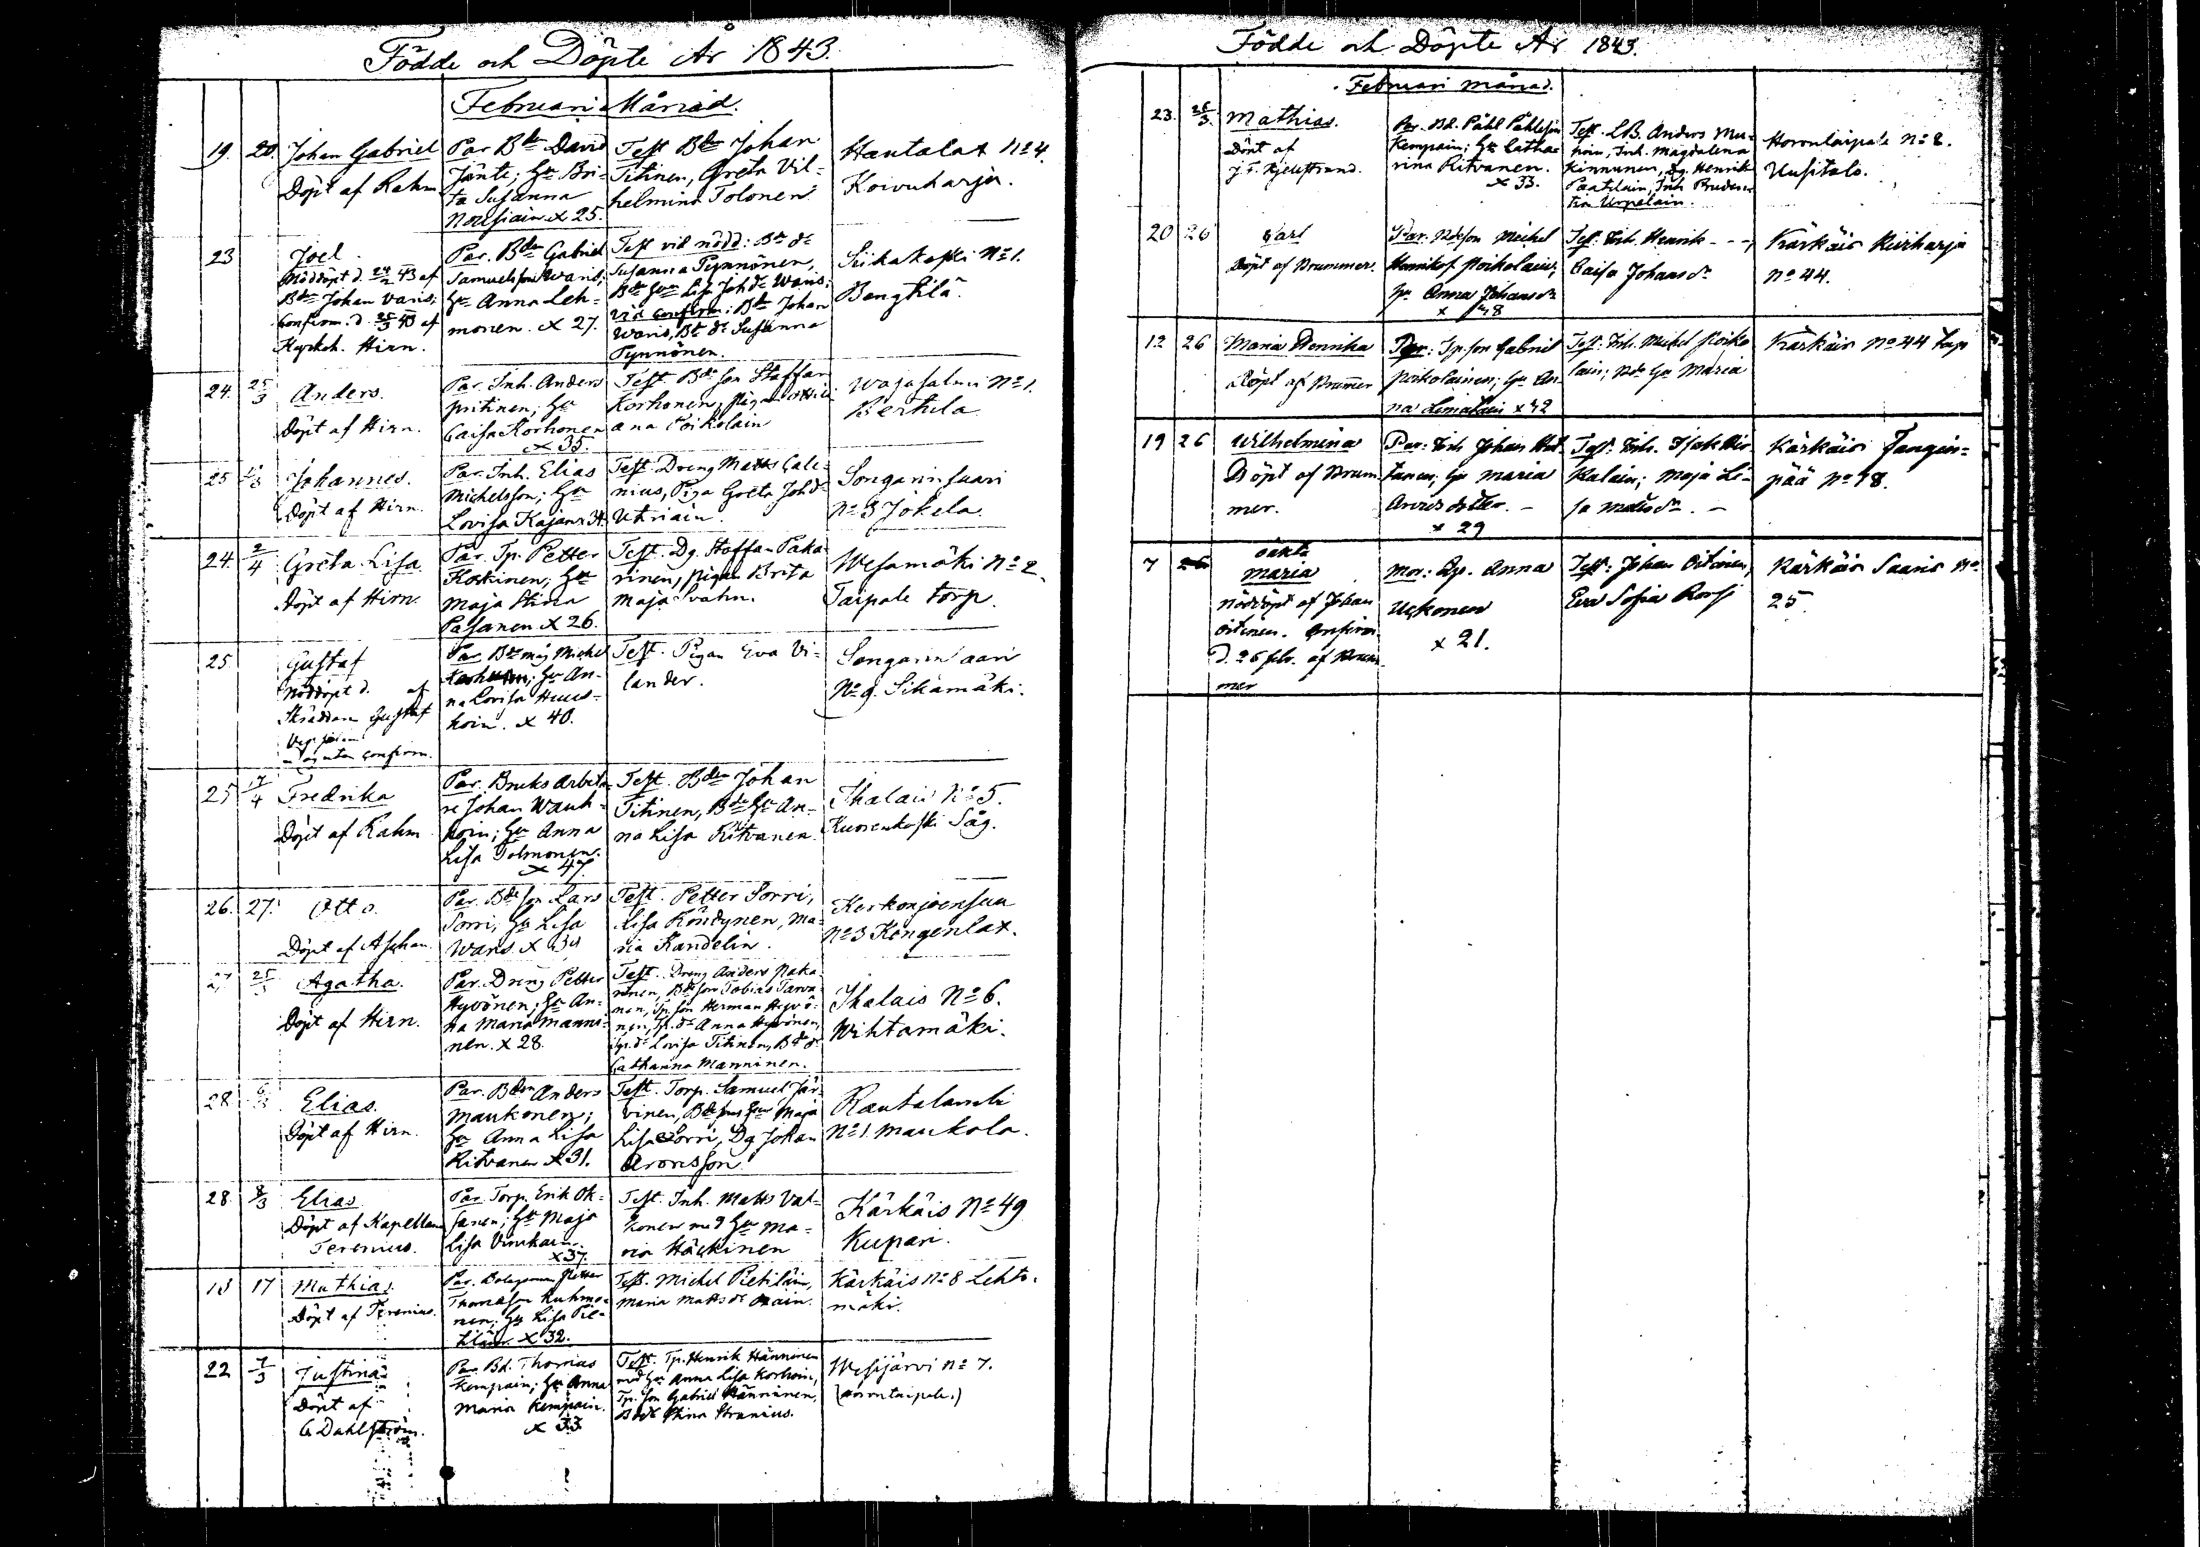 Födde och Döpte År 1843.
Februari Månad.
19. 20. Johan Gabriel
Döpt af Rahm
Par. Bdn David
Jänte; Hu Bri-
ta Susanna
Nousiain x 25.
Test Bdn Johan
Titinen, Greta Vil-
helmina Tolonen
Hautalax No 4.
Koivuharju.
23 Joel
Nöddöpt d. 24/2 43 af
Bdn Johan Varis;
Confirm. d. 25/3 43 af
Kyrkoh. Hirn.
Par. Bdn Gabriel
Samuelsson Waris;
Hu Anna Leh-
monen. x 27.
Test vid nödd: Bd dr
Susanna Pynnönen,
Bde Hun Lisa Joh dr Waris;
vid confirm: Bdn Johan
Waris, Bd dr Susanna
Pynnönen.
Siikakoski No 1.
Bengtilä.
24. 25/3 Anders.
Döpt af Hirn.
Par. Inh. Anders
Pritinen; Hu
Caisa Korhonen
x 35.
Test. Bde son Staffan
Korhonen, pigan
ana Poikolain
Wajasalmi No 1.
Bertula
25 Johannes.
Döpt af Hirn.
Par. Inh. Elias
Michelsson; Hu
Lovisa Kajan x 34.
Test. Dreng Matts Cale-
nius, Piga Greta Joh dr
Utriain.
Songarinsaari
No 3 Jokela
24. 2/4 Greta Lisa.
Döpt af Hirn.
Par. Tp. Petter
Koskinen; Hu
Maja Stina
Pasanen x 26.
Test. Dg. Staffan Paka-
rinen, pigan Brita
Maja Svahn.
Wesamäki No 2.
Taipale torp.
25. Gustaf
Nöddöpt d. af
Skräddare Gustaf
utan confirm.
Par Bde måg Michel
Korhonen; Hu An-
na Lovisa Huus-
koin. x 40.
Test. Pigan Eva Vi-
lander.
Songarin aari
No 9. Sikämäki.
25 17/4 Fredrika
Döpt af Rahm
Par. Bruks arbeta-
re Johan Wauh-
koin; Hu Anna
Lisa Tolmonen.
x 47.
Test. Bdn Johan
Titinen, Bde Hu An-
na Lisa Ritvanen.
Ihalais No 5.
Kuosenkoski Såg.
26. 27. Otto.
Döpt af Aschan.
Par. Bde son Lars
Sorri, Hu Lisa
Waris x
Test. Petter Sorri,
Lisa Röntynen, Ma-
ria Kandelin.
Kerkonjoensuu
No 3 Kengenlax.
27 Agatha.
Döpt af Hirn.
Par. Dreng Petter
Hyvönen; Hu An-
na Maria Manni-
nen. x 28.
Test. Dreng Anders Paka-
rinen, Bde son Tobias Tarva-
nen, Tp. son Herman Hyvö-
nen, Tp. dr Anna Hyvönen,
Tp. dr Lovisa Titinen, Bd dr
Catharina Manninen.
Ihalais No 6.
Wihtamäki.
28. Elias.
Döpt af Hirn.
Par. Bdn Anders
Maukonen;
Hu Anna Lisa
Ritvanen x 31.
Test. Torp. Samuel Jär-
vinen, Bde sons Hun Maja
Lisa Sorri, Dg Johan
Aronsson
Rautalambi
No 1. Maukola.
28. 8/3 Elias
Döpt af Kapellan
Terenius.
Par Torp. Erik Ok-
sanen; Hu Maja
Lisa Vinikain.
x 37
Test. Inh. Matts Val-
konen med Hu Ma-
ria Häckinen
Kärkäis No 49
Kupari.
13 17 Mathias.
Döpt af Terenius.
Par. Bolagsman Petter
Thomasson Ruhmo-
nen; Hu Lisa Pie-
tiläin x 32.
Test. Michel Pietiläin,
Maria Matts dr
Kärkäis No 8 Lehto-
mäki.
22 7/3 Justina
Döpt af
C. Dahlström.
Par. Bd. Thomas
Kempain; Hu Anna
Maria Kempain.
x 33
Test. Tp. Henrik Hänninen
med Hu Anna Lisa Korhoin,
Tp. son Gabriel Hänninen,
Bd dr Stina Stranius.
Wesijärvi No 7.
(Horontaipale.)
Födde och Döpte År 1843.
Februari månad.
23. 26/3. Mathias.
Döpt af
J. F. Kjellstrand.
Par. Bd. Påhl Påhlsson
Kempain; Hu Catha-
rina Ritvanen.
x 33.
Test. LB. Anders Mu-
hoin, Inh. Magdalena
Kinnunen, Dg. Henrik
Paatilain, Inh
tra Urpolain.
Horontaipale No 8.
Uusitalo.
20 26 Carl
Döpt af Brummer.
Par. Bdeson Michel
Henriksson Poikolain;
Hu Anna Johans dr
x 48
Test. Inh. Henrik - - -,
Caisa Johans dr
Kärkäis Kiiskarja
No 44.
12 26 Maria Henrika
Döpt af Brumer
Par: Tp. son Gabriel
Poikolainen; Hu An-
na x 42
Test: Inh. Michel Poiko-
lain; Bde Hu Maria
Kärkäis No 44
19 26 Wilhelmina
Döpt af Brum-
mer.
Par: Inh Johan
Hu Maria
Andersdotter. -
x 29
Test. Inh.
kalain; Maja Li-
sa Matts dr. -
Kärkäis
pää No 18.
7 26 oäkta
Maria
Nöddöpt af Johan
Oitinen. Confirm.
d. 26 febr. af Brum-
mer
Mor: Anna
Uckonen
x 21.
Test: Johan Oitinen,
Eva Sofia Roos
Kärkäis Saaris No
25